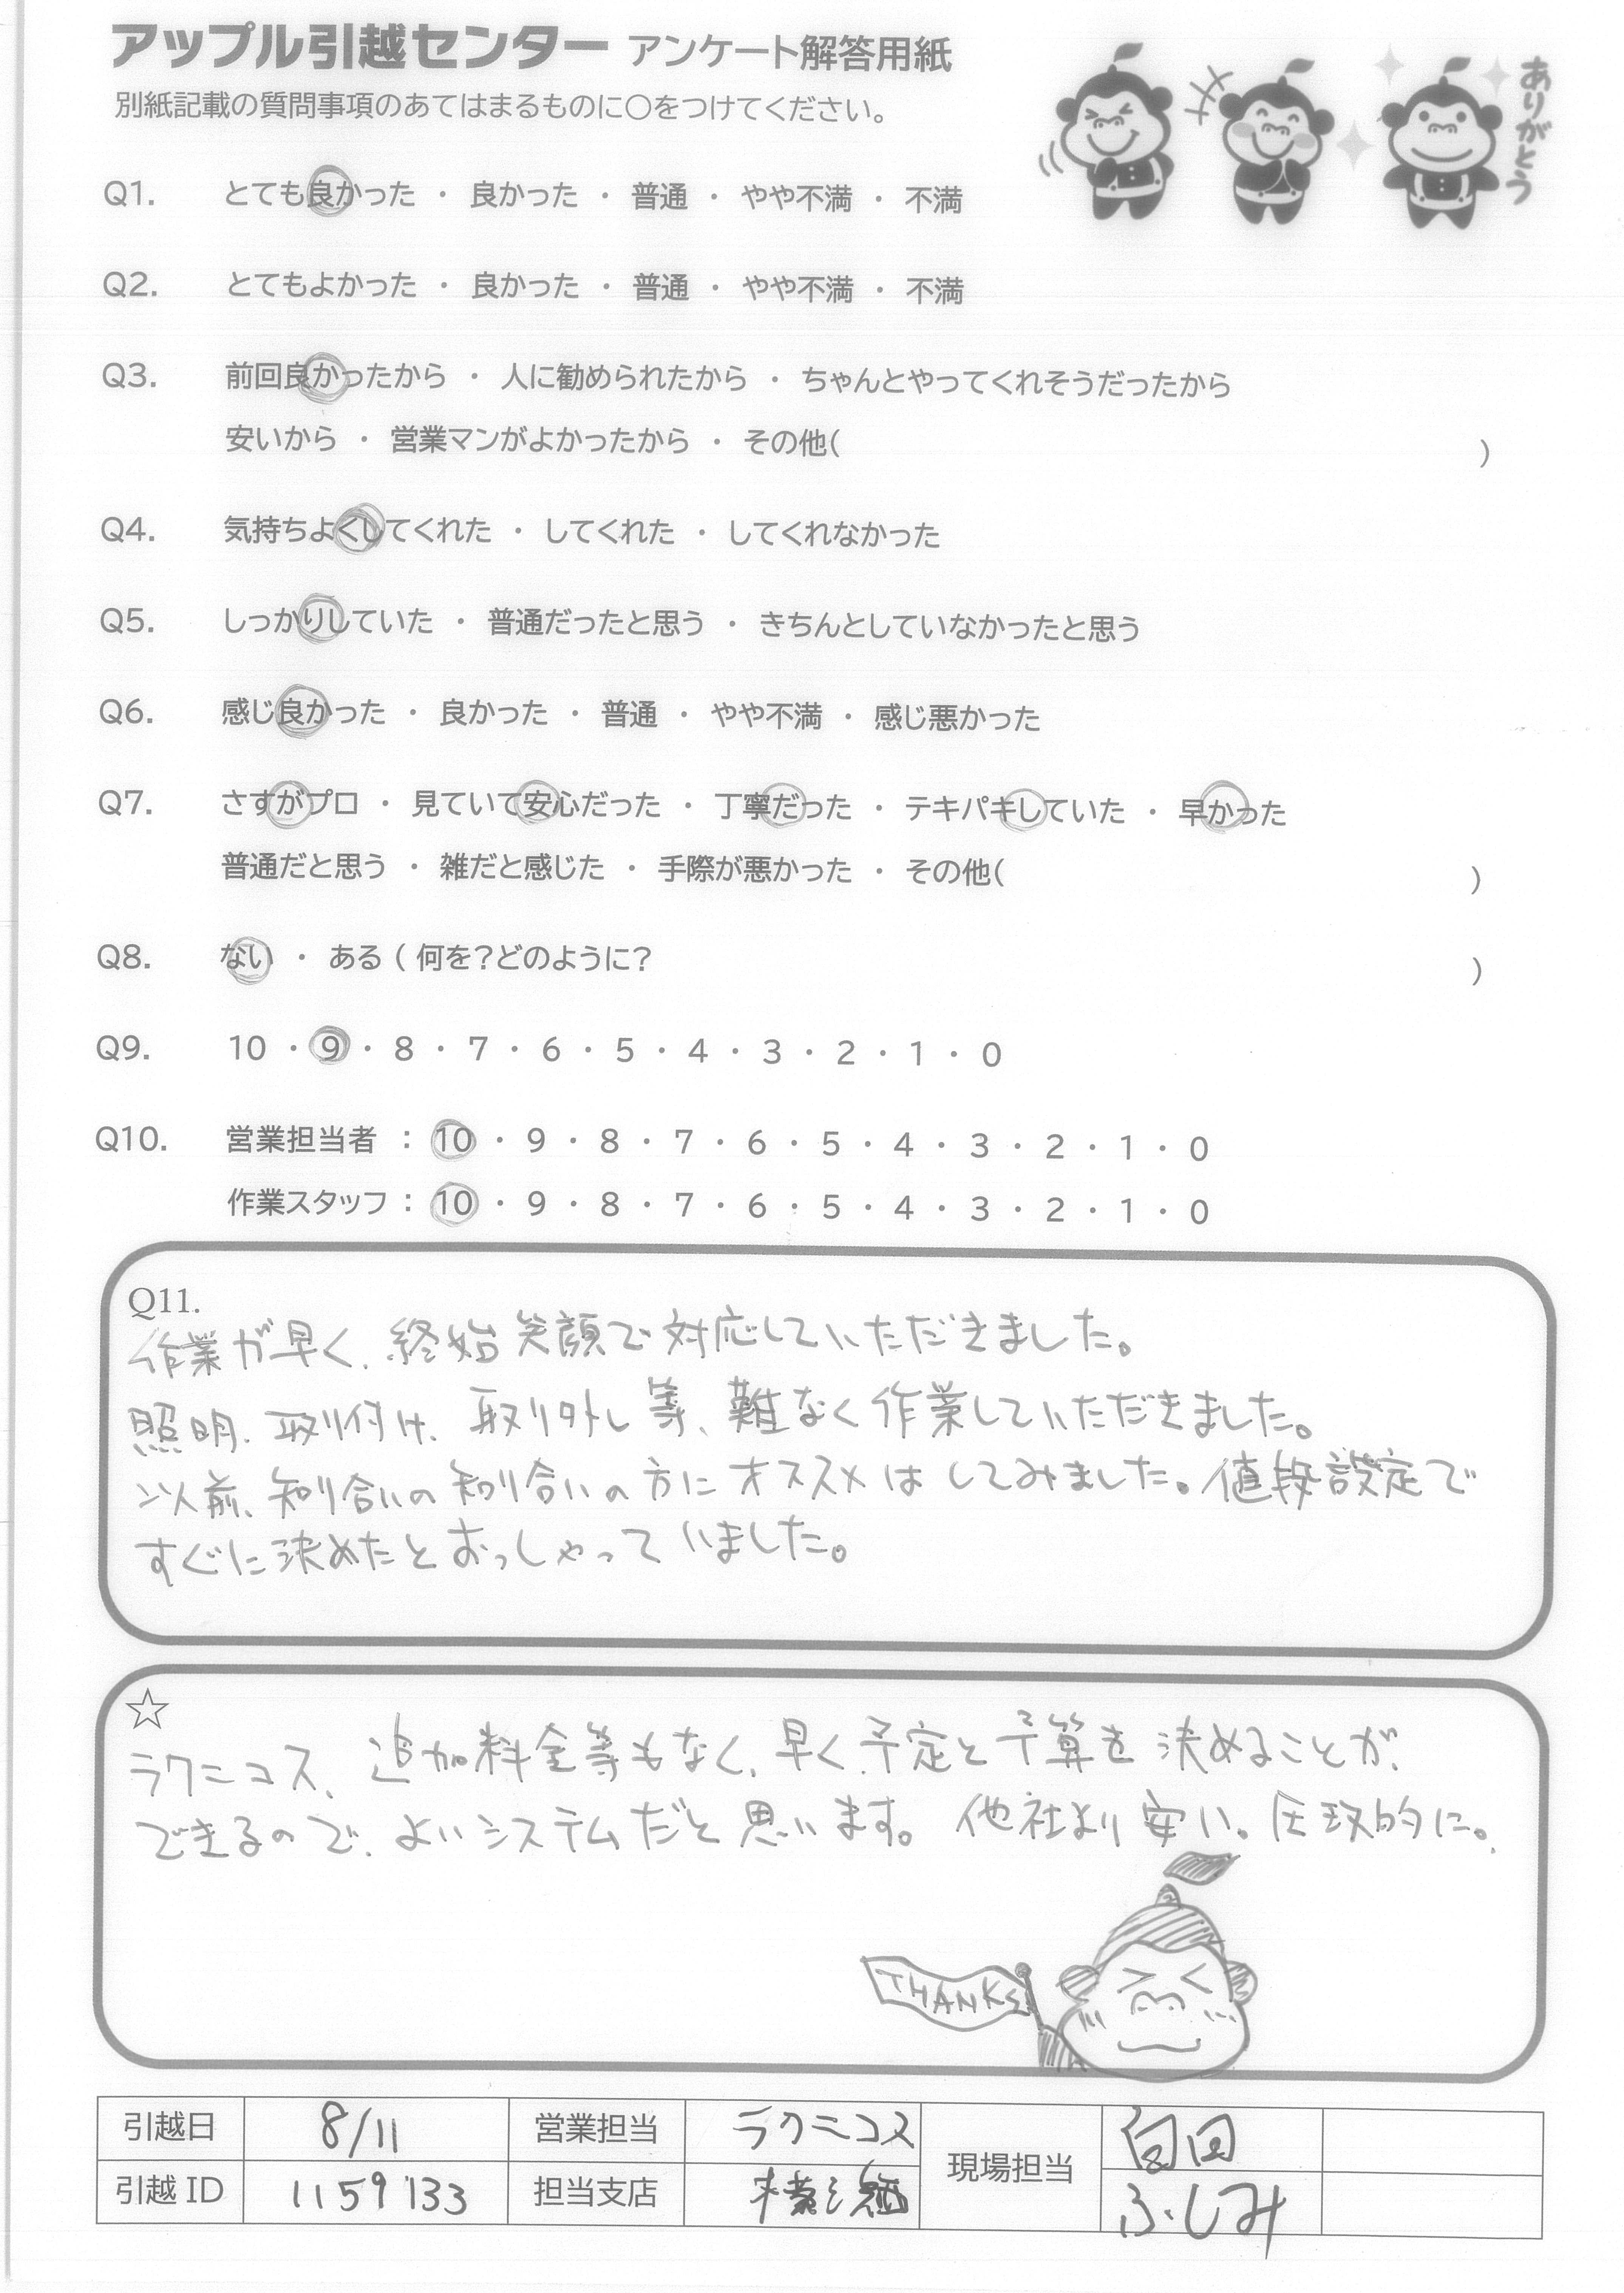 アップル引越センター アンケート解答用紙
ありがとう
別紙記載の質問事項のあてはまるものに○をつけてください。
Q1. とても良かった ・ 良かった ・ 普通 ・ やや不満 ・ 不満
Q2. とてもよかった ・ 良かった ・ 普通 ・ やや不満 ・ 不満
Q3. 前回良かったから ・ 人に勧められたから ・ ちゃんとやってくれそうだったから
安いから ・ 営業マンがよかったから ・ その他( )
Q4. 気持ちよくしてくれた ・ してくれた ・ してくれなかった
Q5. しっかりしていた ・ 普通だったと思う ・ きちんとしていなかったと思う
Q6. 感じ良かった ・ 良かった ・ 普通 ・ やや不満 ・ 感じ悪かった
Q7. さすがプロ ・ 見ていて安心だった ・ 丁寧だった ・ テキパキしていた ・ 早かった
普通だと思う ・ 雑だと感じた ・ 手際が悪かった ・ その他( )
Q8. ない ・ ある ( 何を?どのように? )
Q9. 10 ・ 9 ・ 8 ・ 7 ・ 6 ・ 5 ・ 4 ・ 3 ・ 2 ・ 1 ・ 0
Q10. 営業担当者 : 10 ・ 9 ・ 8 ・ 7 ・ 6 ・ 5 ・ 4 ・ 3 ・ 2 ・ 1 ・ 0
作業スタッフ : 10 ・ 9 ・ 8 ・ 7 ・ 6 ・ 5 ・ 4 ・ 3 ・ 2 ・ 1 ・ 0
Q11.
作業が早く、終始笑顔で対応していただきました。
照明、取り付け、取り外し等、難なく作業していただきました。
以前、知り合いの知り合いの方にオススメはしてみました。値段設定で
すぐに決めたとおっしゃっていました。
☆
ラクニコス、追加料金等もなく、早く予定と予算を決めることが、
できるので、よいシステムだと思います。他社より安い。圧倒的に。
THANKS
引越日 8/11 営業担当 ラクニコス 現場担当 白田
引越 ID 1159133 担当支店 ふしみ